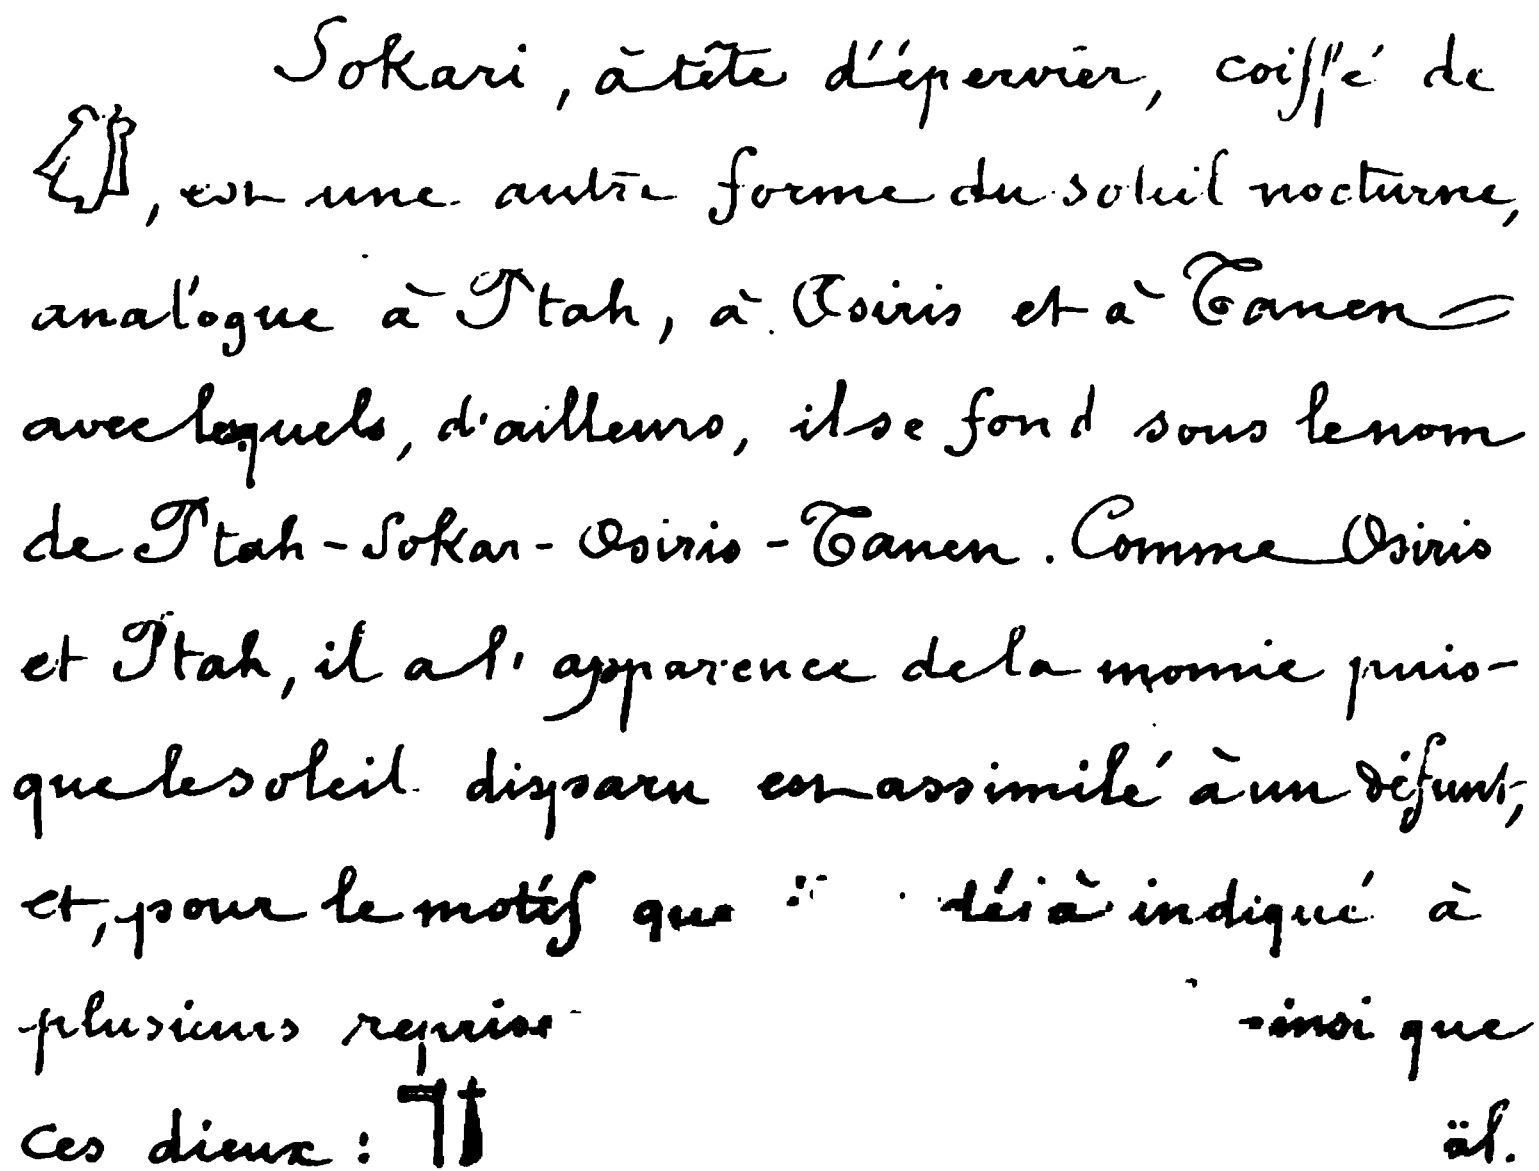 Sokari, à tête d'épervier, coiffé de
, est une autre forme du soleil nocturne,
analogue à Ptah, à Osiris et à Tanen
avec lesquels, d'ailleurs, il se fond sous le nom
de Ptah-Sokar-Osiris-Tanen. Comme Osiris
et Ptah, il a l'apparence de la momie puis-
que le soleil disparu est assimilé à un défunt,
et, pour le motif que déjà indiqué à
plusieurs que
ces dieux :